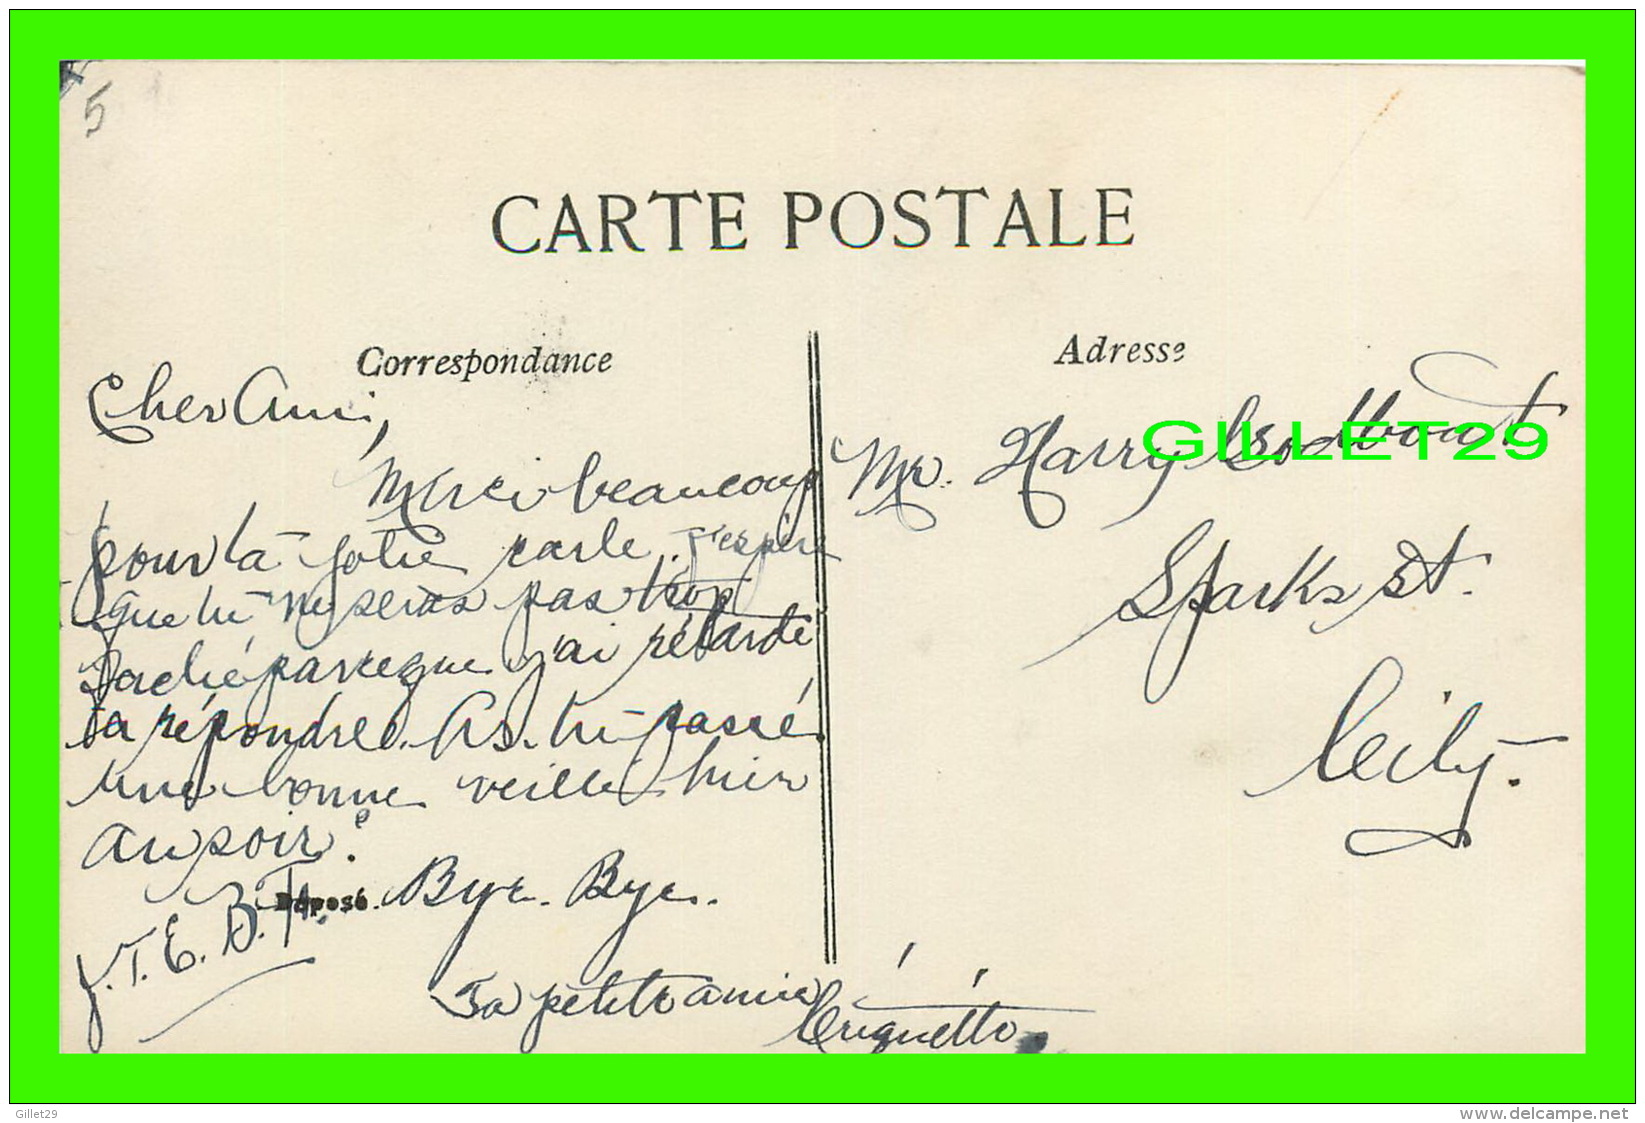 5
CARTE POSTALE
Correspondance
Cher Ami,
Merci beaucoup
pour ta jolie carte. J'espère
que tu ne seras pas trop
faché parceque j'ai rétardé
ta répondre. As-tu passé
une bonne veille hier
au soir?
Déposé
Bye-Bye.
J.T.E.B.T.
Ta petite amie
Adresse
Mr. Harry Godbout
Sparks St.
City.
GILLET29
Gillet29
www.delcampe.net